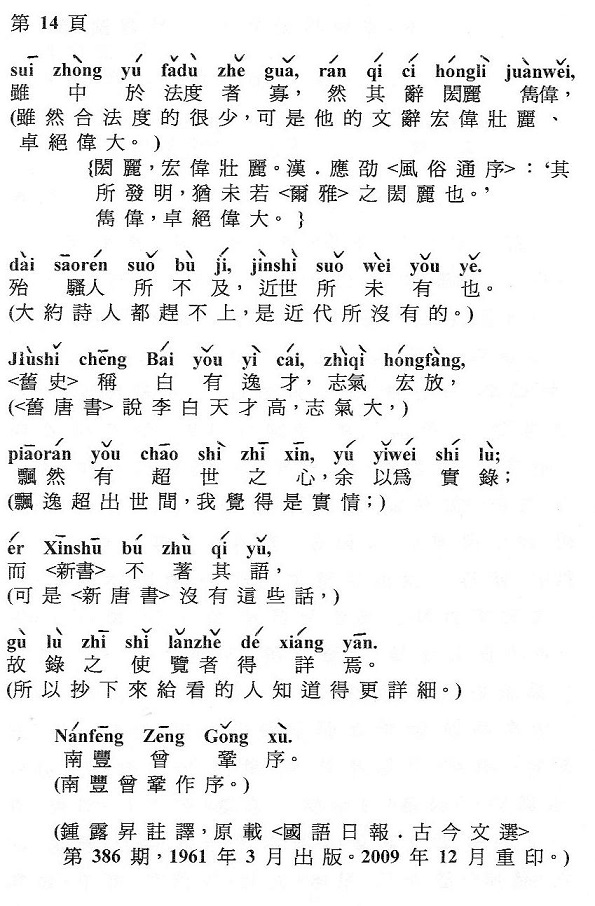 第 14 頁
suī zhòng yú fǎdù zhě guǎ, rán qí cí hónglì juànwěi,
雖 中 於 法度 者 寡， 然 其 辭 閎麗 雋偉，
(雖 然 合 法 度 的 很 少， 可 是 他 的 文 辭 宏 偉 壯 麗 、
卓 絕 偉 大。 )
{閎 麗，宏 偉 壯 麗。漢．應 劭 <風 俗 通 序>：‘其
所 發 明，猶 未 若 <爾 雅> 之 閎 麗 也。’
雋 偉，卓 絕 偉 大。 }
dài sāorén suǒ bù jí, jìnshì suǒ wèi yǒu yě.
殆 騷人 所 不 及， 近世 所 未 有 也。
(大 約 詩 人 都 趕 不 上，是 近 代 所 沒 有 的。)
Jiùshǐ chēng Bái yǒu yì cái, zhìqì hóngfàng,
<舊 史> 稱 白 有 逸 才，志氣 宏 放，
(<舊 唐 書> 說 李 白 天 才 高，志 氣 大，)
piāorán yǒu chāo shì zhī xīn, yú yǐwéi shí lù;
飄 然 有 超 世 之 心，余 以爲 實 錄；
(飄 逸 超 出 世 間，我 覺 得 是 實 情；)
ér Xīnshū bú zhù qí yǔ,
而 <新書> 不 著 其 語，
(可 是 <新 唐 書> 沒 有 這 些 話，)
gù lù zhī shǐ lǎnzhě dé xiáng yān.
故 錄 之 使 覽者 得 詳 焉。
(所 以 抄 下 來 給 看 的 人 知 道 得 更 詳 細。)
Nánfēng Zēng Gǒng xù.
南 豐 曾 鞏 序。
(南 豐 曾 鞏 作 序。)
(鍾 露 昇 註 譯，原 載 <國 語 日 報．古 今 文 選>
第 386 期，1961 年 3 月 出 版。2009 年 12 月 重 印。)